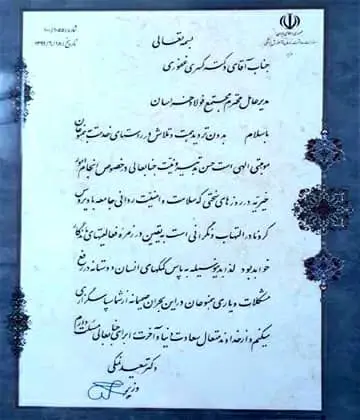 بسمه تعالی
جناب آقای دکتر کسری غفوری
مدیرعامل محترم مجتمع فولاد خراسان
باسلام بدون تردید همت و تلاش در راستای خدمت به همنوعان
موهبتی الهی است حسن تدبیر و نیت جنابعالی درخصوص انجام امور
خیریه در روزهای سختی که سلامت و امنیت روانی جامعه با ویروس
کرونا در التهاب و نگرانی است به یقین در زمره فعالیتهای ماندگار
خواهد بود لذا بدینوسیله به پاس کمکهای انسان دوستانه در رفع
مشکلات و یاری همنوعان در این بحران صمیمانه از شما سپاسگزاری
میکنم و از خداوند متعال سعادت دنیا و آخرت را برای جنابعالی مسئلت دارم
دکتر سعید نمکی
وزیر